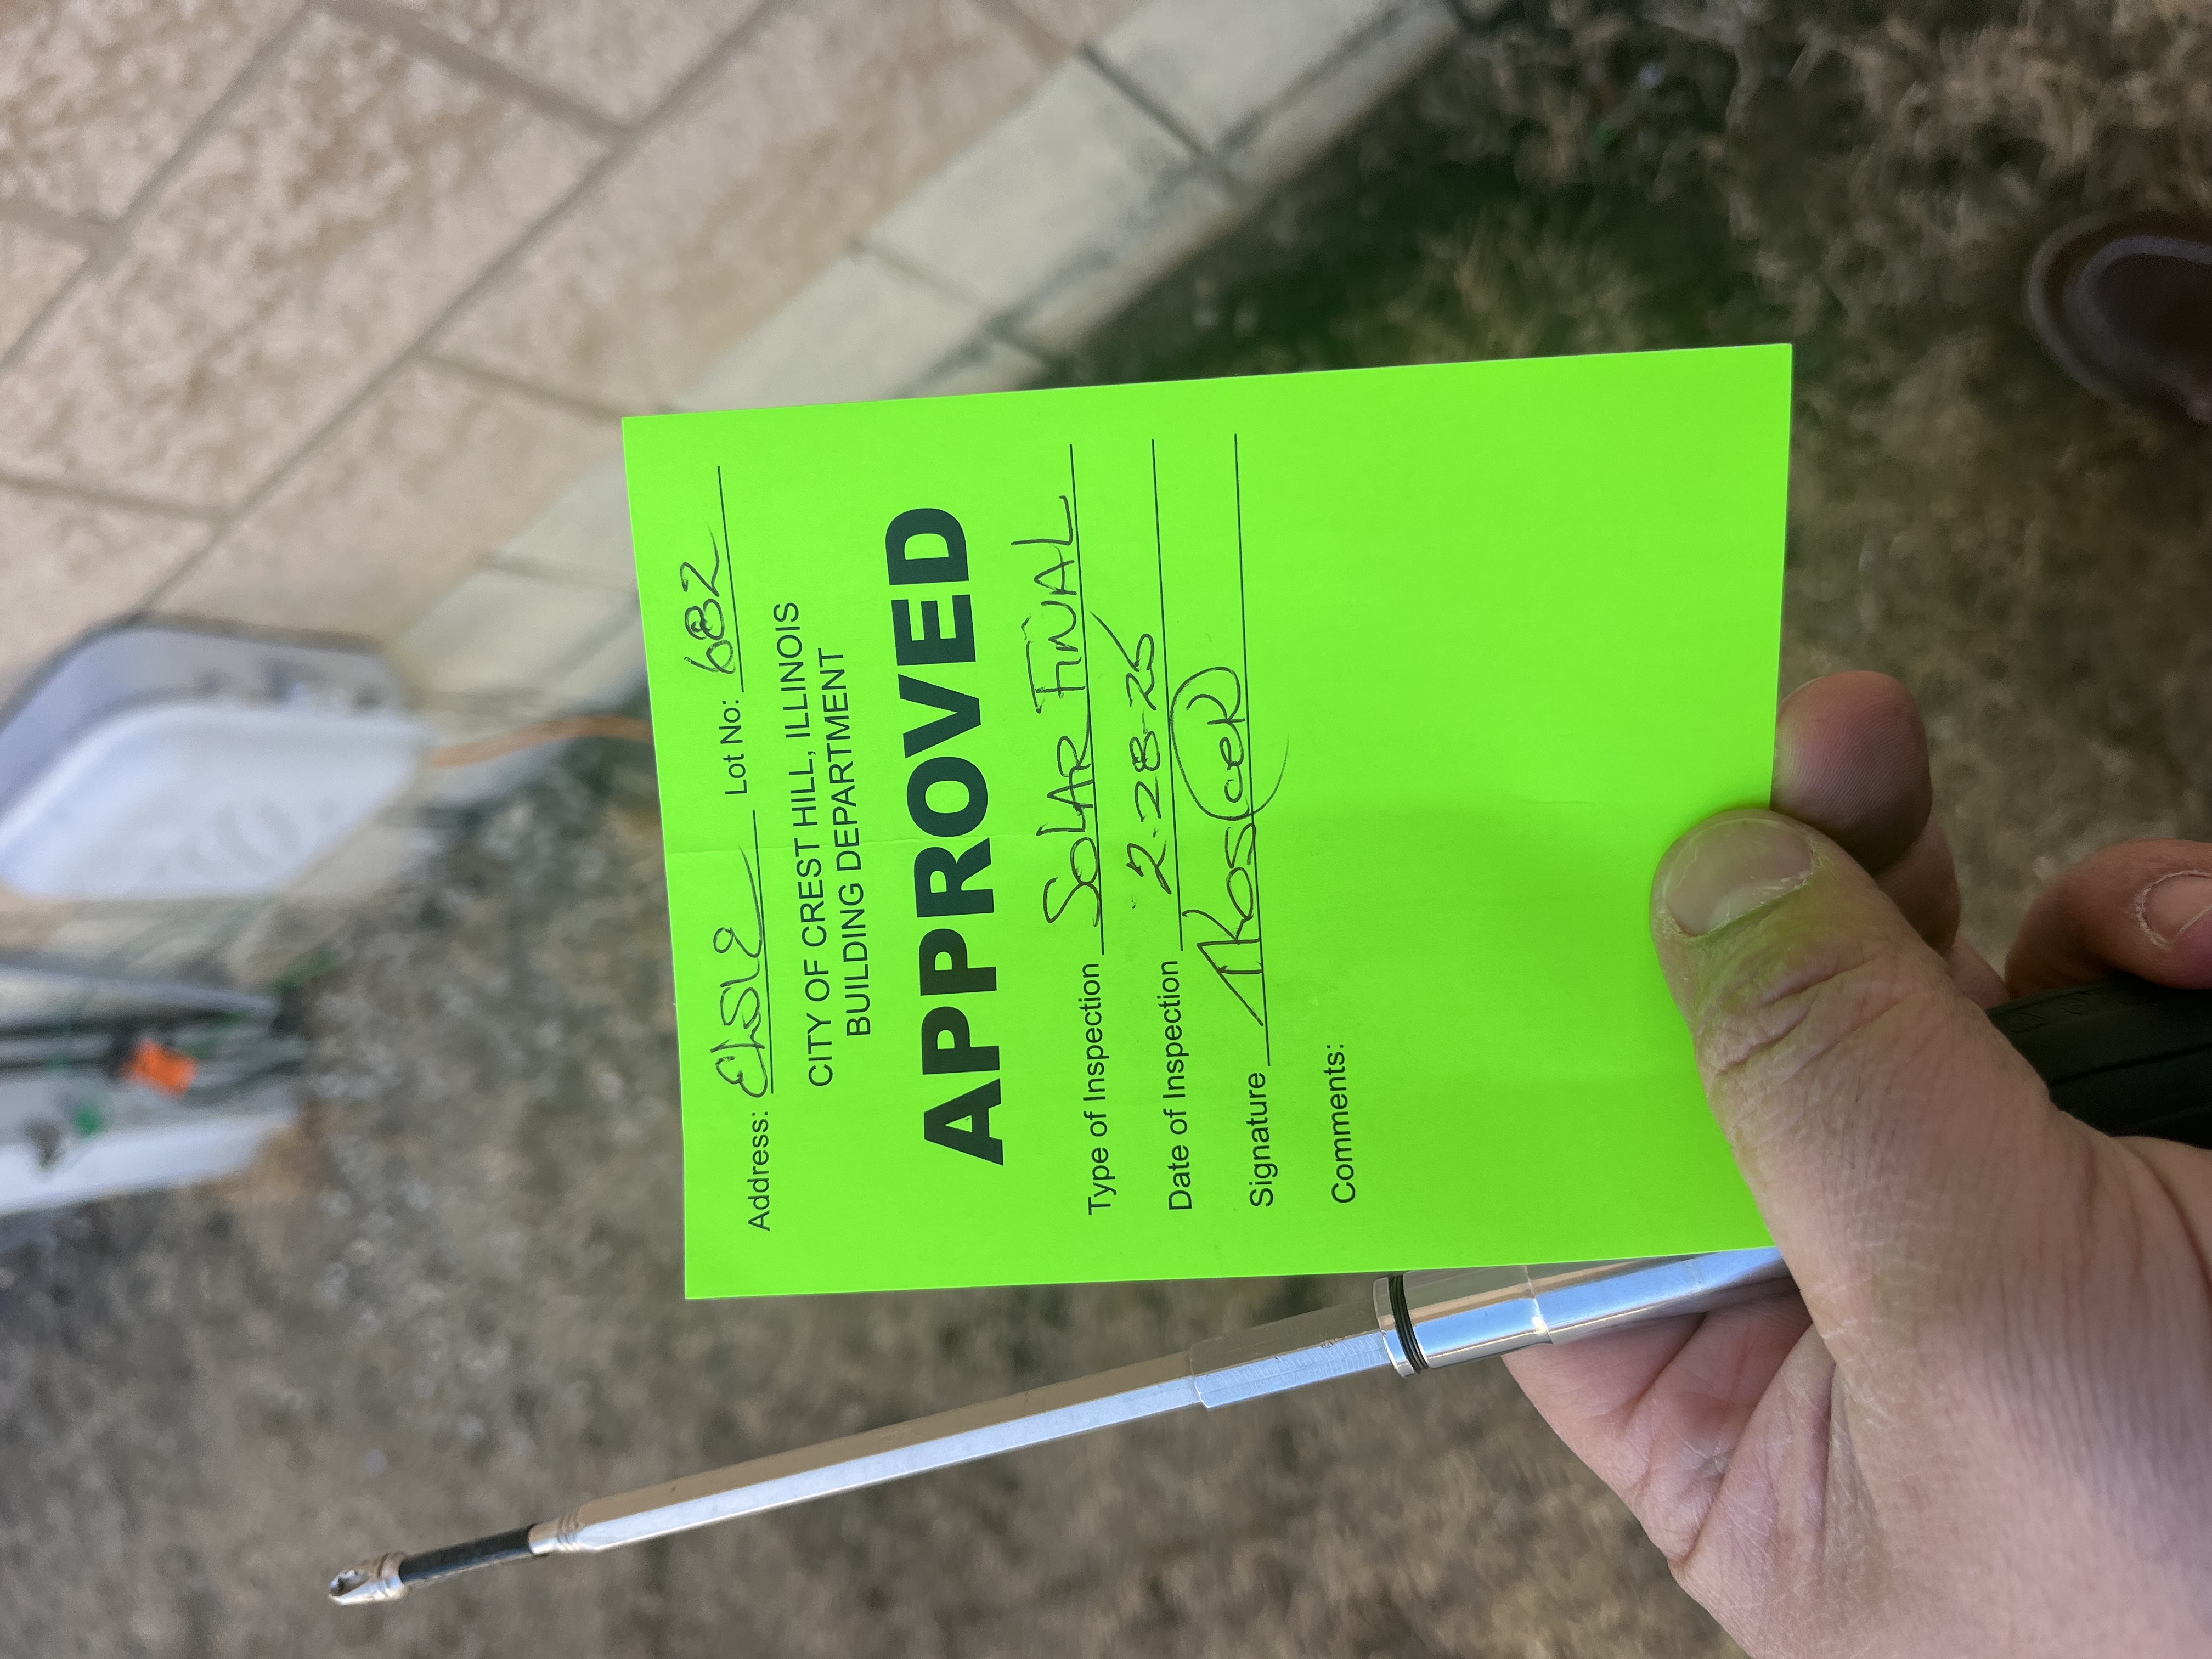 Address: Elsie Lot No: 682
CITY OF CREST HILL, ILLINOIS
BUILDING DEPARTMENT
APPROVED
Type of Inspection SOLAR FINAL
Date of Inspection 2-28-25
Signature
Comments: